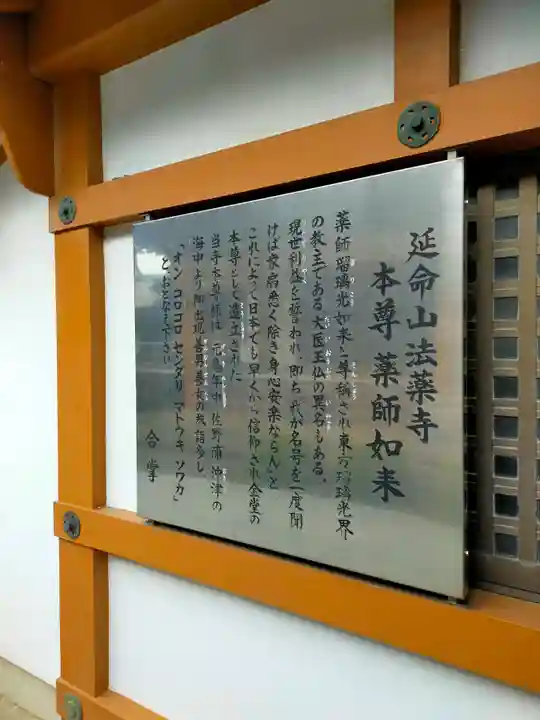 延命山法薬寺
本尊 薬師如来
薬師瑠璃光如来と尊称され東方瑠璃光界
の教主である大医王仏の異名もある。
現世利益を誓われ、即ち「我が名号を一度聞
けば衆病悉く除き身心安楽ならん」と
これによって日本でも早くから信仰され金堂の
本尊として造立された
当寺本尊様は元 年中 佐野浦沖津の
海中より御出現善男善女の参詣多し
「オン コロコロ センダリ マトウギ ソワカ」
とおとなえ下さい
合掌